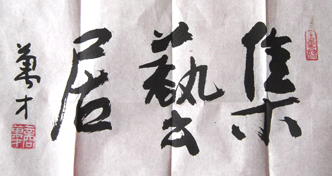 集藝居
萬才